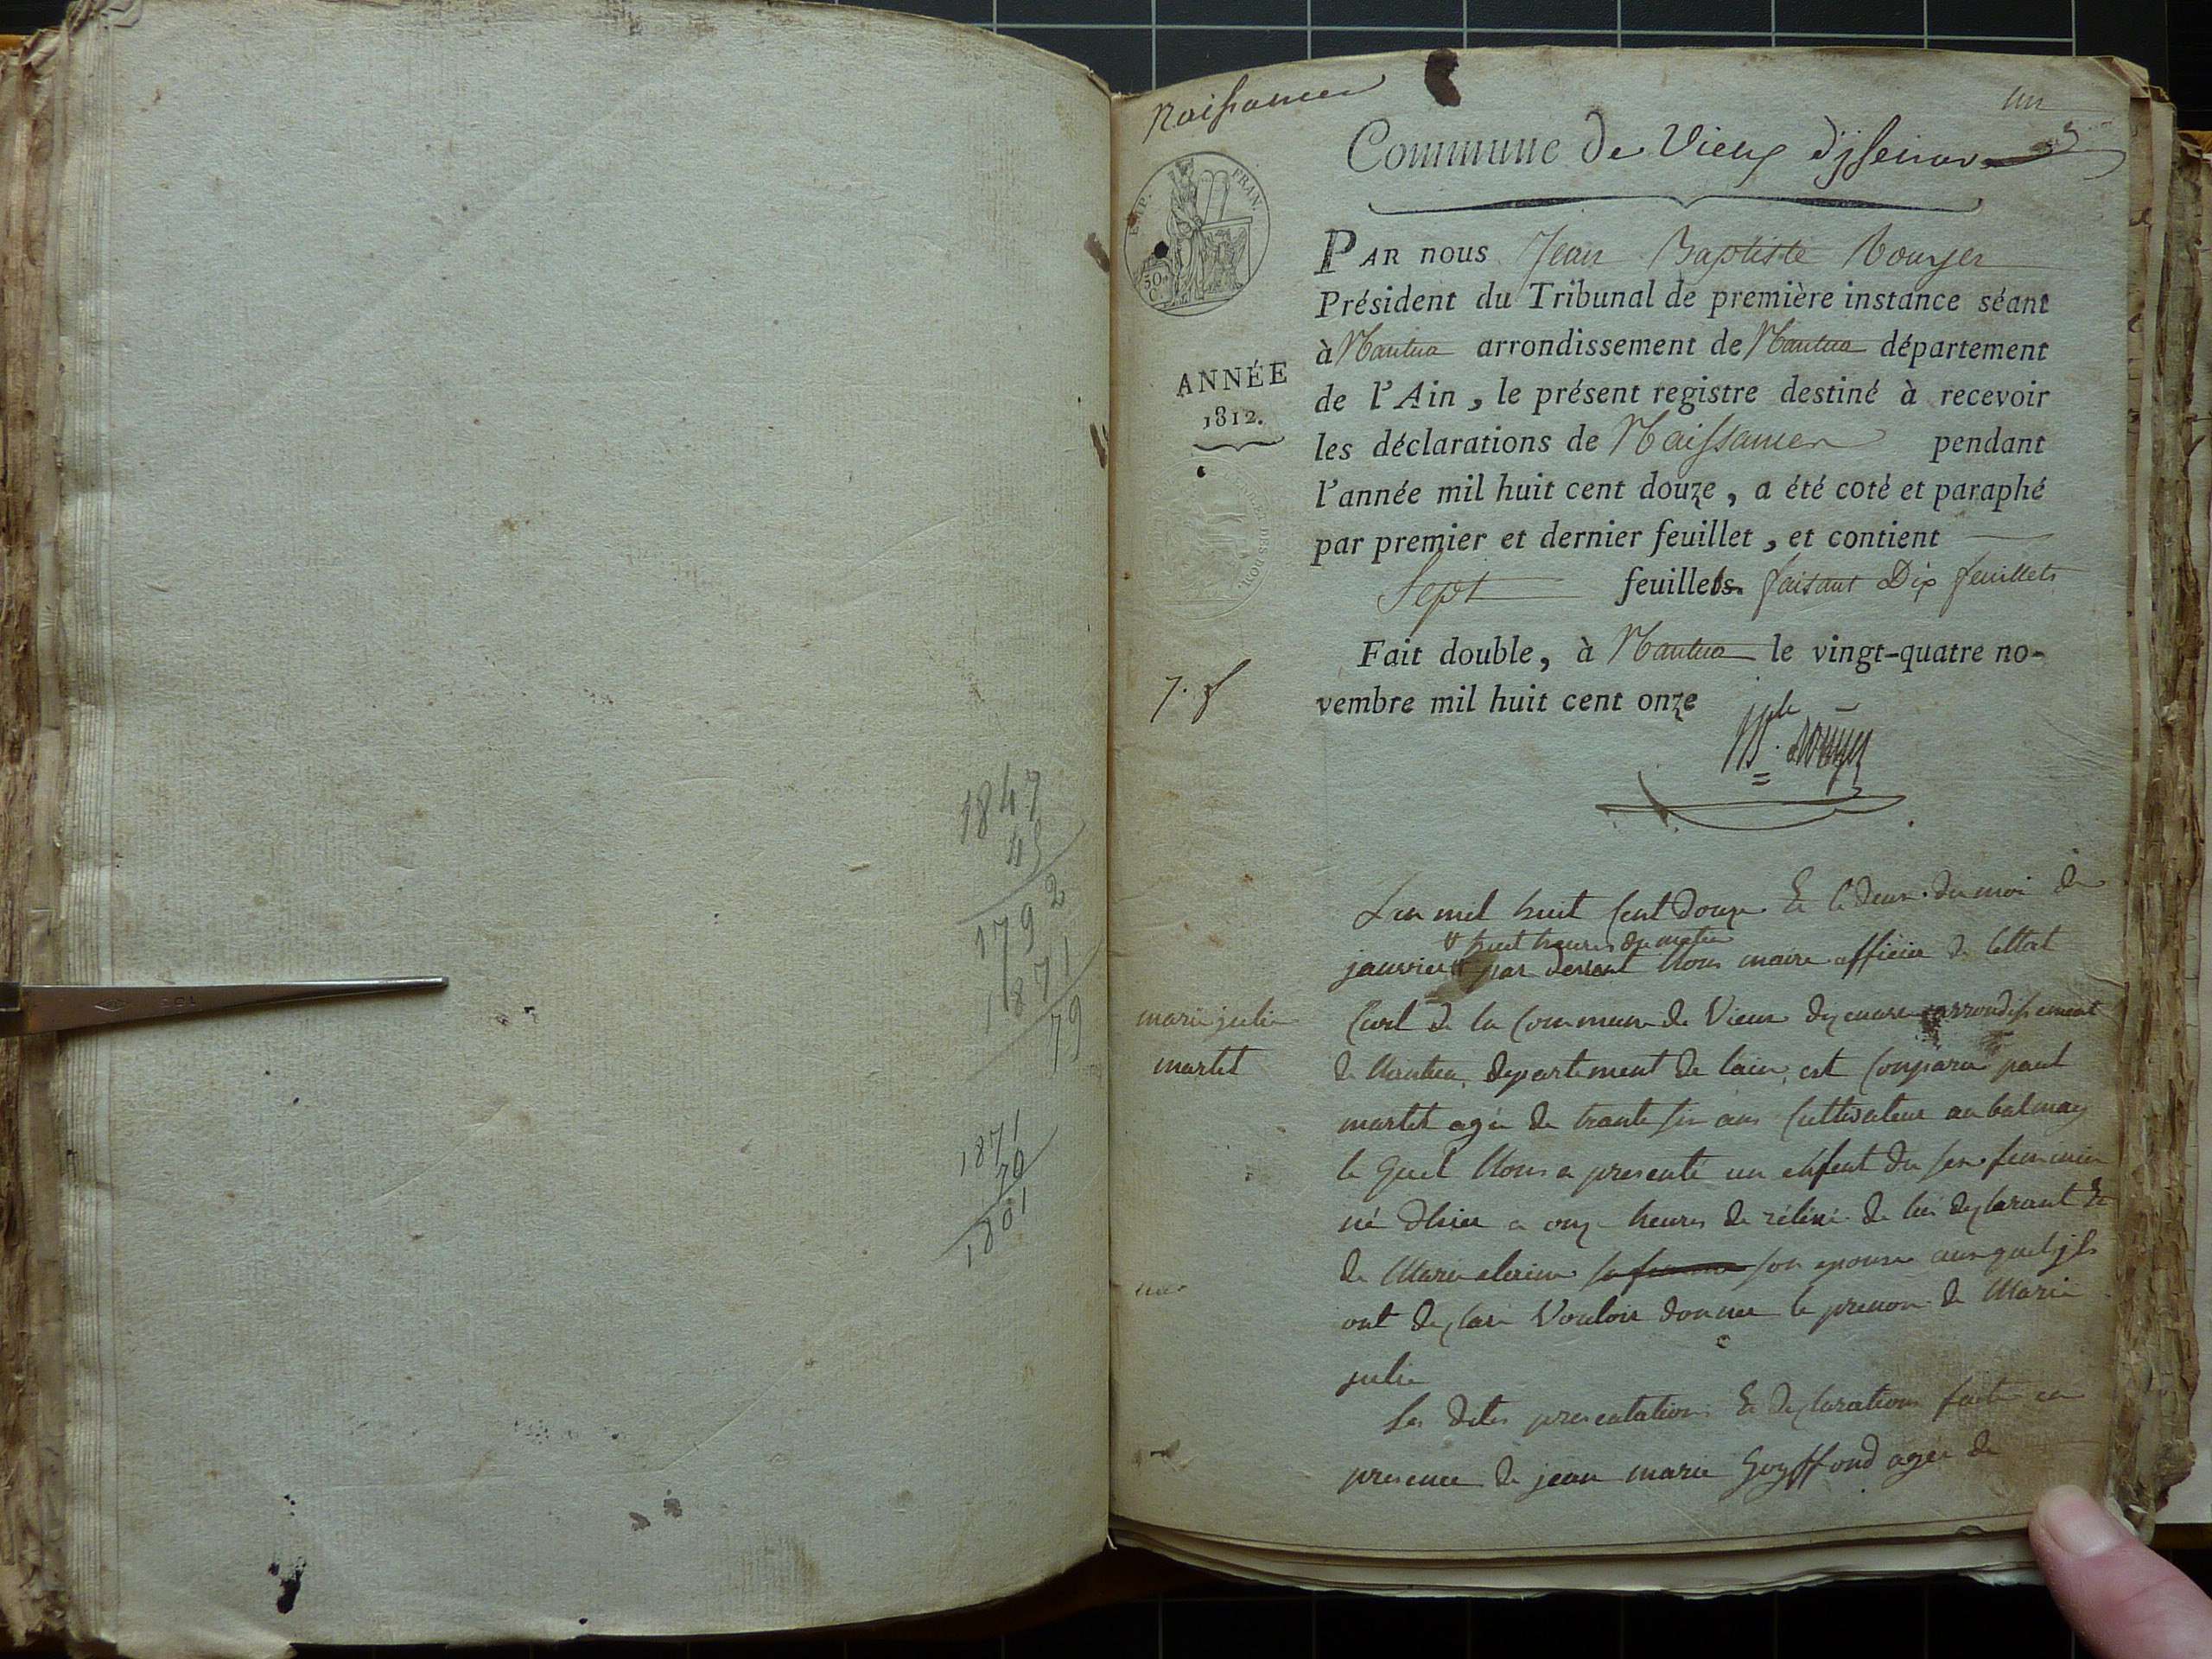 1847
45
1792
1871
79
1871
70
1801
Naissances
un
Commune de Vieux d'jsenave
EMP. FRAN.
50
C.
PAR nous Jean Baptiste Rouyer
Président du Tribunal de première instance séant
à Nantua arrondissement de Nantua département
ANNÉE
1812.
de l'Ain, le présent registre destiné à recevoir
les déclarations de Naissances pendant
l'année mil huit cent douze, a été coté et paraphé
par premier et dernier feuillet, et contient
Sept feuillets. faisant Dix feuillets
Fait double, à Nantua le vingt-quatre no-
7. f
vembre mil huit cent onze
Lan mil huit Cent douze Et le deux du moi de
huit heures du matin
janvier par devant Nous maire officier de lettat
marie julie
martet
Civil de la Commune de Vieux dizenave arrondissement
de Nantua, departement de lain, est Comparu paul
martet agé de trante six ans Cultivateur au balmay
le quel Nous a presenté un enfent du sex feminin
né d'hier a onze heures de rélévé de lui declarant Et
de Marie sa femme son epouse auxquel jls
ont declaré Vouloir donner le prenom de Marie
julie
les dites presentation Et declarations faite en
presence de jean marie Goyffond agée de